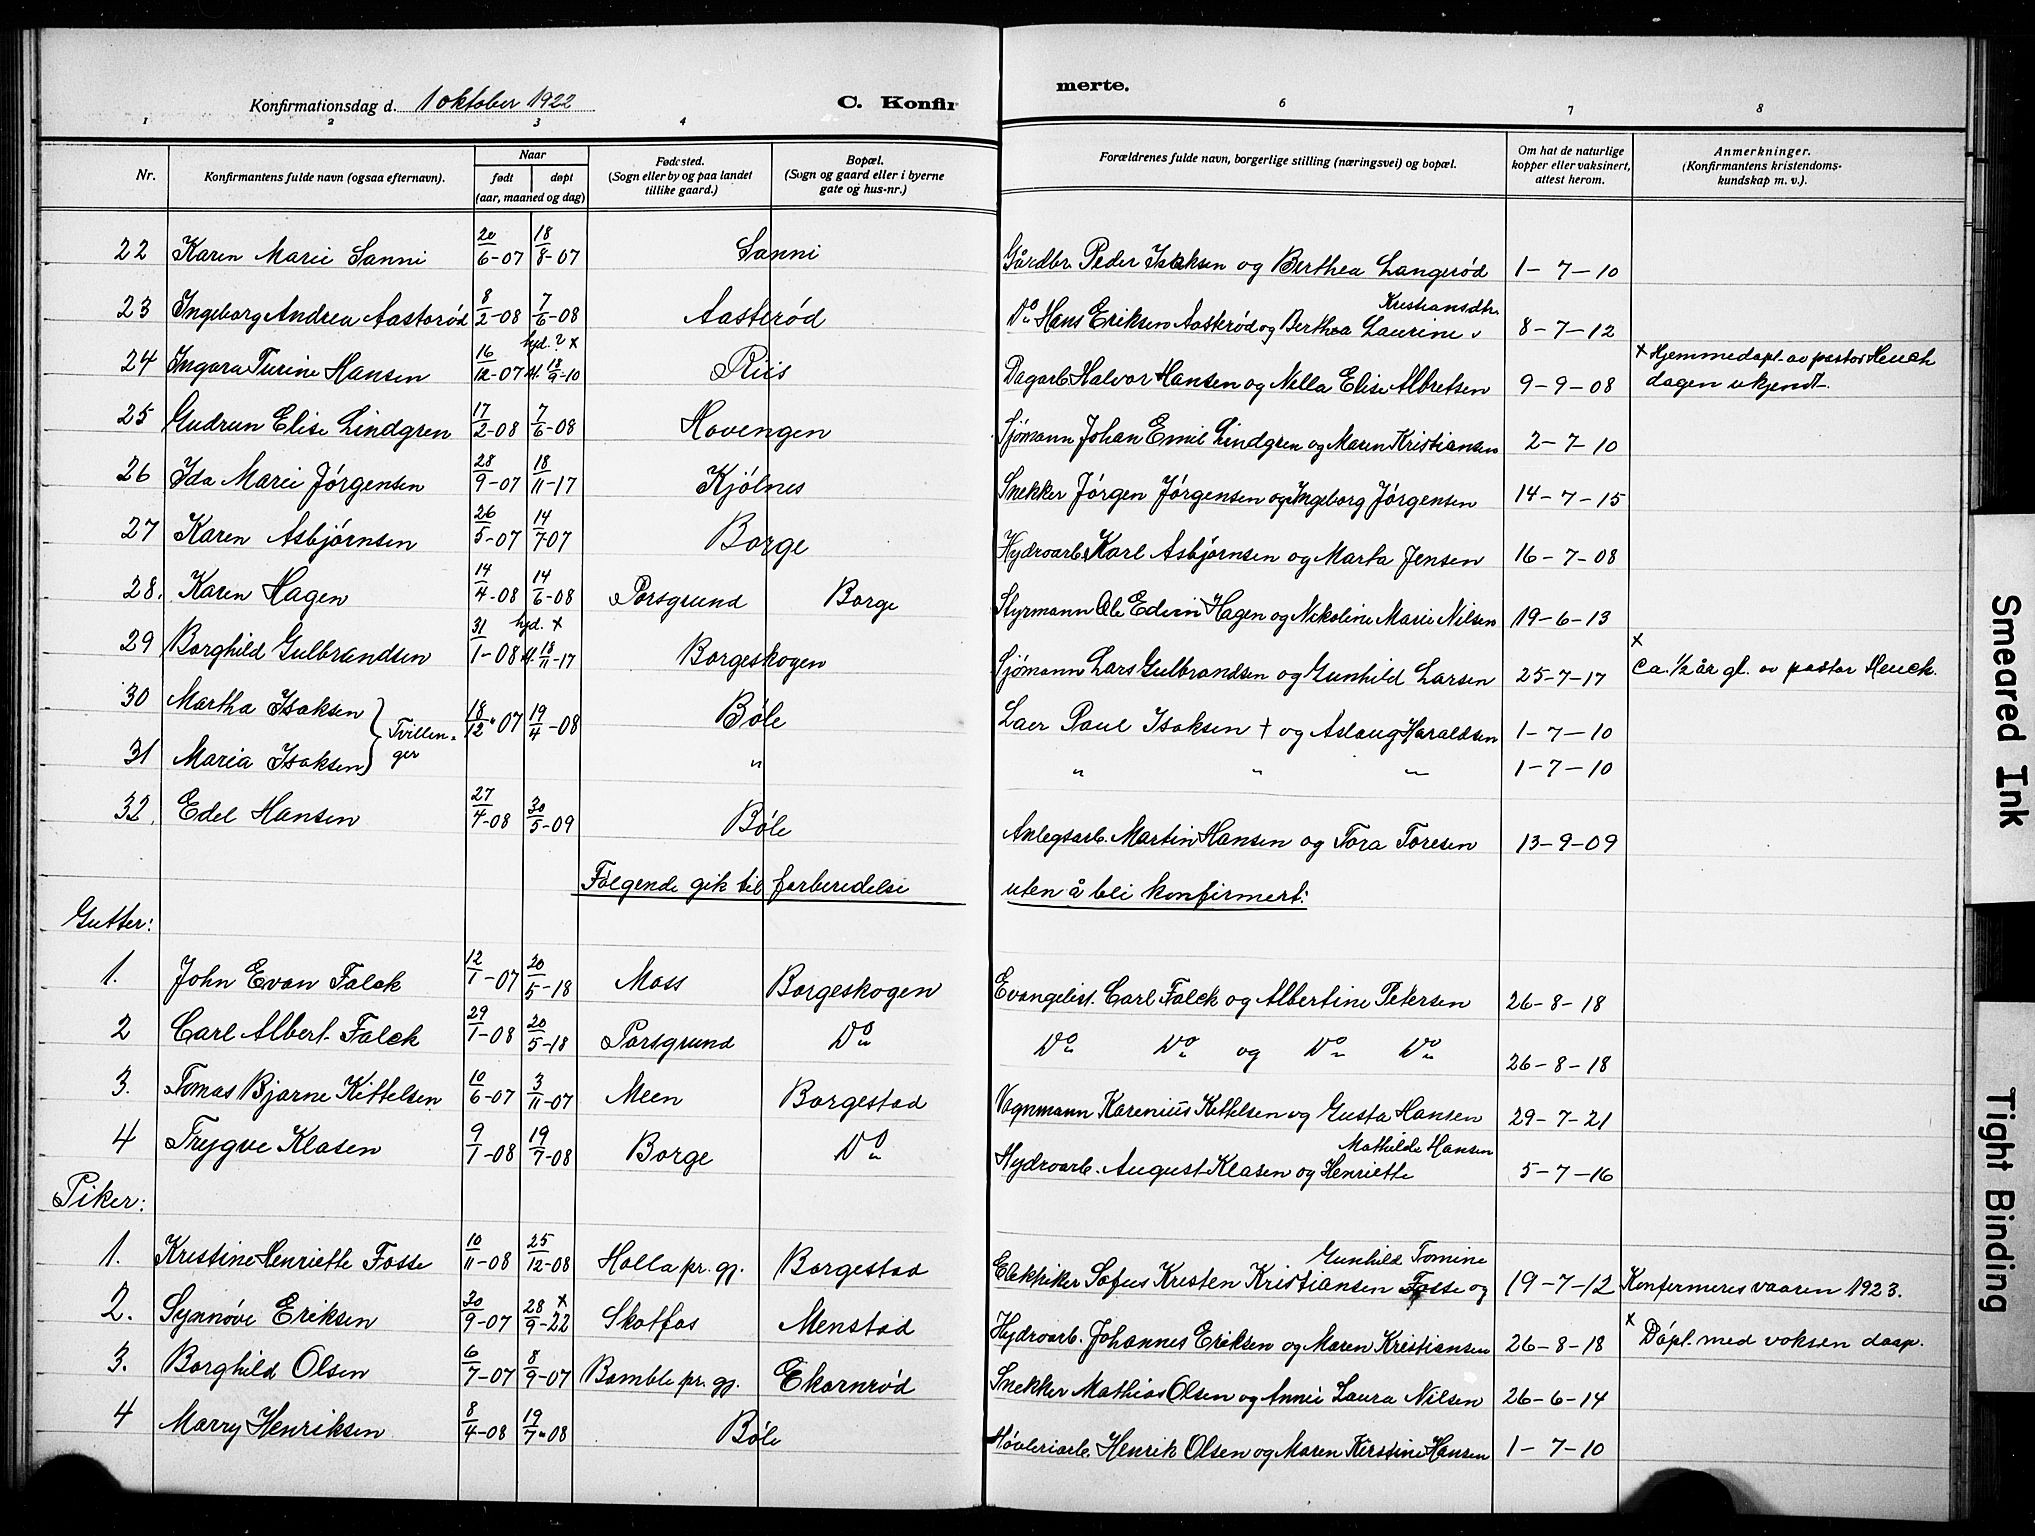 Konfirmationsdag d. 1 oktober 1922 C. Konfirmerte.
1 2 3 4 6 7 8
Nr. Konfirmantens fulde navn (ogsaa efternavn). Naar født døpt (aar, maaned og dag) Fødested. (Sogn eller by og paa landet tillike gaard.) Bopæl. (Sogn og gaard eller i byerne gate og hus-nr.) Forældrenes fulde navn, borgerlige stilling (næringsvei) og bopæl. Om hat de naturlige kopper eller vaksinert, attest herom. Anmerkninger. (Konfirmantens kristendoms-kundskap m. v.).
22 Karen Marie Sanni 20/6-07 18/8-07 Sanni Gårdbr. Peder Isaksen og Berthea Langerød 1-7-10
23 Ingeborg Andrea Aasterød 8/2-08 7/6-08 Aasterød Do Hans Eriksen Aasterød og Berthea Laurine Kristiansdtr. 8-7-12
24 Ingara Turine Hansen 16/12-07 hjd. ? x st. 18/9-10 Riis Dagarb. Halvor Hansen og Nella Elise Albretsen 9-9-08 x Hjemmedøpt av pastor Heuch dagen ukjendt.
25 Gudrun Elise Lindgren 17/2-08 7/6-08 Hovengen Sjømann Johan Emil Lindgren og Maren Kristiansen 2-7-10
26 Ida Marie Jørgensen 28/9-07 18/11-17 Kjølnes Snekker Jørgen Jørgensen og Ingeborg Jørgensen 14-7-15
27 Karen Asbjørnsen 26/5-07 14/7 07 Borge Hydroarb. Karl Asbjørnsen og Marta Jensen 16-7-08
28. Karen Hagen 14/4-08 14/6-08 Porsgrund Borge Styrmann Ole Edvin Hagen og Nikoline Marie Nilsen 19-6-13
29 Borghild Gulbrandsen 31/1-08 hjd. x st. 18/11-17 Borgeskogen Sjømann Lars Gulbrandsen og Gunhild Larsen 25-7-17 x Ca. 1/2 år gl. av pastor Heuch.
30 Martha Isaksen } Tvillinger 18/12-07 19/4-08 Bøle Laer Paul Isaksen + og Aslaug Haraldsen 1-7-10
31 Maria Isaksen } " " " " 1-7-10
32. Edel Hansen 27/4-08 30/5-09 Bøle Anlegsarb. Martin Hansen og Tora Toresen 13-9-09
Følgende gik til forberedelse uten å bli konfirmert:
Gutter:
1. John Evan Falck 12/1-07 20/5-18 Moss Borgeskogen Evangelist. Carl Falck og Albertine Petersen 26-8-18
2 Carl Albert Falck 29/1-08 20/5-18 Porsgrund Do Do Do og Do Do 26-8-18
3. Tomas Bjarne Kittelsen 10/6-07 3/11-07 Meen Borgestad Vognmann Karenius Kittelsen og Gusta Hansen 29-7-21
4 Trygve Klasen 9/1-08 19/7-08 Borge Do Hydroarb. August Klasen og Henriette Mathilde Hansen 5-7-16
Piker:
1. Kristine Henriette Fosse 10/11-08 25/12-08 Holla pr. gj. Borgestad Elektriker Sofus Kristen Kristiansen Fosse og Gunhild Tomine 19-7-12 Konfermeres vaaren 1923.
2. Synnøve Eriksen 30/9-07 28/9-22 x Skotfos Menstad Hydroarb. Johannes Eriksen og Maren Kristiansen 26-8-18 x Døpt med voksen daap.
3. Borghild Olsen 6/7-07 8/9-07 Bamble pr. gj. Ekornrød Snekker Mathias Olsen og Annie Laura Nilsen 26-6-14
4 Marry Henriksen 8/4-08 19/7-08 Bøle Høvleriarb. Henrik Olsen og Maren Kirstine Hansen 1-7-10
Smeared Ink
Tight Binding